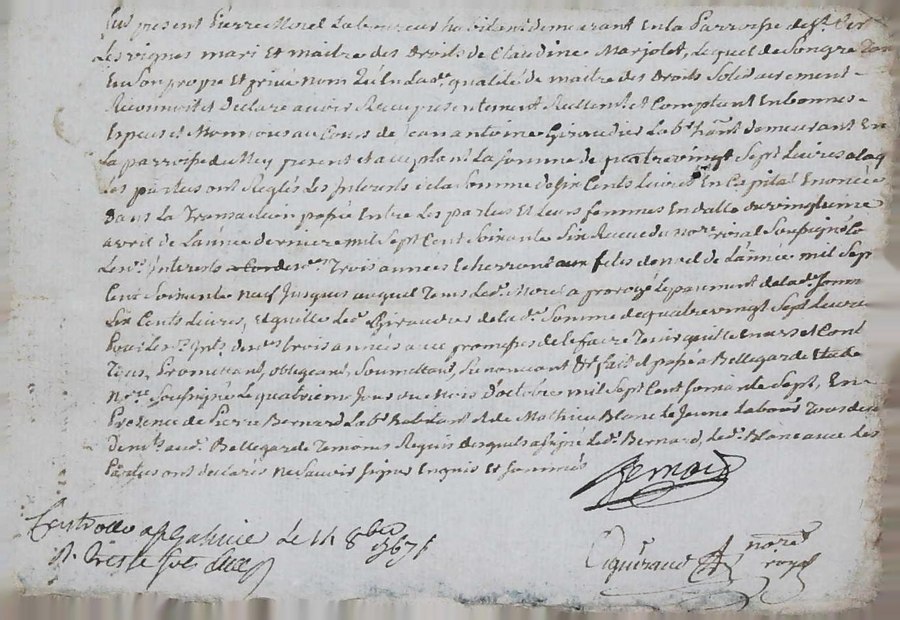 fut present Pierre Morel Laboureur habitant demeurant En la Parroisse de st
Les vignes mari Et maitre des Droits de Claudine Marjolet, Lequel de Son gre
En Son propre Et privé nom qu'En lade. qualité de maitre des Droits Solidairement
Reconnoit et Declare avoir Recu presentement Reellement et Comptant En bonnes
Especes et Monnoies au Cours de jean antoine Giraudier Labr. hant. demeurant En
La parroisse du present et acceptant La Somme de quatre vingt Sept Livres a laq
Les parties ont Reglés Les Interets de la Somme de Six Cents Livres En Capital Enoncée
dans La Transaction passée Entre Les parties Et Leurs femmes En datte du vingtieme
avril de L'année derniere mil Sept Cent Soixante Six Recue du nore. roial Soussigné
Interets Trois années Echerront aux fetes de noel de L'année mil Sep
Cent Soixante neuf jusques auquel Tems Led. Morel a prorogé Le paiement de lad. Somme
Six Cents Livres, Et quitte Led. Giraudier de lad. Somme de quatre vingt Sept Livres
Pour Les Ints. trois années avec promesse de le faire Tenir quitte Envers et Cont
Tous, Promettant, obligeant, Soumettant, Renoncant &c fait Et passé a Bellegarde Etude
Nore. Soussigné Le quatrieme Jour du Mois d'octobre mil Sept Cent Soixante Sept, En
Presence de Pierre Bernard Labr. habitant & de Mathieu Blanc Le Jeune Labour Tous deux
Demts. aud. Bellegarde Temoins Requis desquels a signé Led. Bernard, Led. Blanc avec Les
Parties ont declarés ne Savoir signer Enquis Et Sommés
Bernard
Controllé a St Galmier Le 14 8bre 1767
R. treize sols
nore.
roial